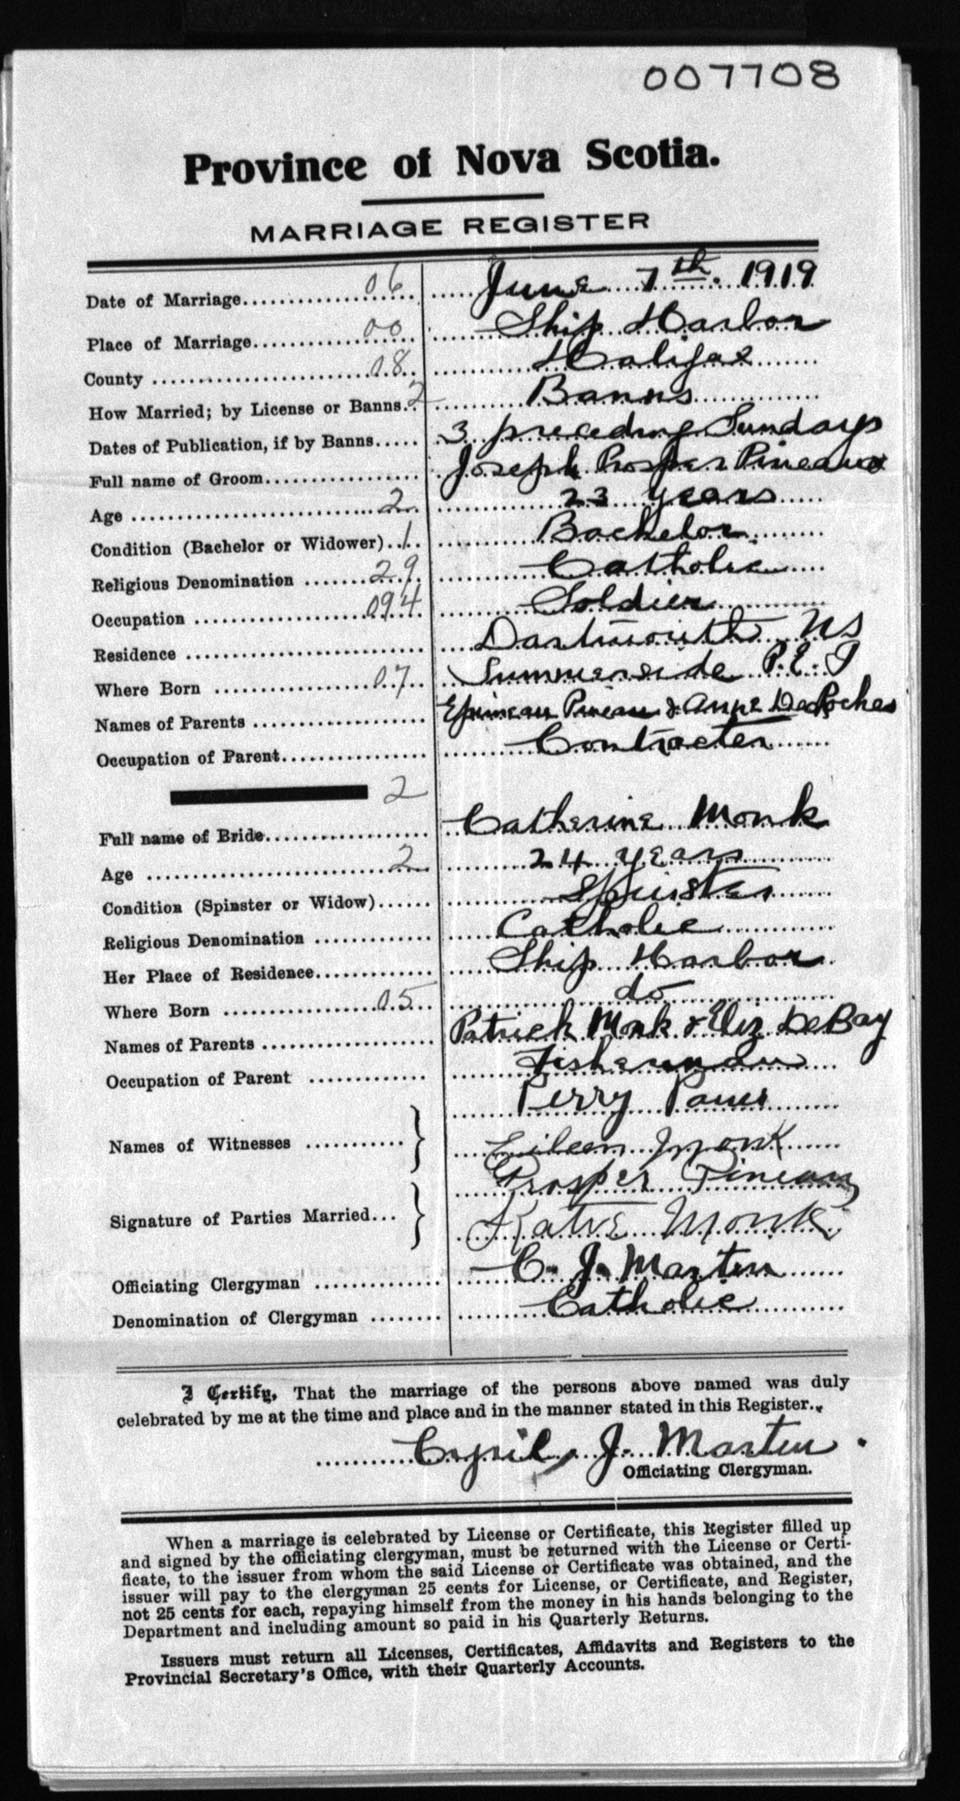 007708
Province of Nova Scotia.
MARRIAGE REGISTER
Date of Marriage 06 June 7th. 1919
Place of Marriage 00 Ship Harbor
County 08 Halifax
How Married; by License or Banns 2 Banns
Dates of Publication, if by Banns 3 preceding Sundays
Full name of Groom Joseph Prosper Pineau
Age 2 23 years
Condition (Bachelor or Widower) 1 Bachelor
Religious Denomination 29 Catholic
Occupation 094 Soldier
Residence Dartmouth NS
Where Born 07 Summerside P.E.I
Names of Parents Pineau & Anne DesRoches
Occupation of Parent Contracter
2
Full name of Bride Catherine Monk
Age 2 24 years
Condition (Spinster or Widow) Spinster
Religious Denomination Catholic
Her Place of Residence Ship Harbor
Where Born 05 do
Names of Parents Patrick Monk & Eliz DeBay
Occupation of Parent Fisherman
Perry
Names of Witnesses Eileen Monk
Prosper Pineau
Signature of Parties Married Katie Monk
Officiating Clergyman C. J. Martin
Denomination of Clergyman Catholic
I Certify, That the marriage of the persons above named was duly
celebrated by me at the time and place and in the manner stated in this Register.
Cyril J. Martin.
Officiating Clergyman.
When a marriage is celebrated by License or Certificate, this Register filled up
and signed by the officiating clergyman, must be returned with the License or Certi-
ficate, to the issuer from whom the said License or Certificate was obtained, and the
issuer will pay to the clergyman 25 cents for License, or Certificate, and Register,
not 25 cents for each, repaying himself from the money in his hands belonging to the
Department and including amount so paid in his Quarterly Returns.
Issuers must return all Licenses, Certificates, Affidavits and Registers to the
Provincial Secretary's Office, with their Quarterly Accounts.